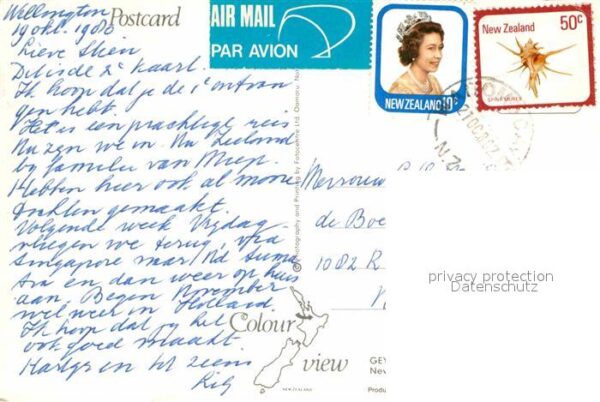 Wellington
19 okt. 1980
Postcard
AIR MAIL
PAR AVION
NEW ZEALAND 10c
New Zealand 50c
Lieve Stien
Dit is de 2e kaart.
Ik hoop dat je de 1e ontvan
gen hebt.
Het is een prachtige reis
Nu zyn we in Nw Zeeland
by familie van Miep.
Hebben hier ook al mooie
tochten gemaakt.
Volgende week Vrijdag
vliegen we terug, via
Singapore naar Nd Suma
tra en dan weer op huis
aan. Begin November
wel weer in Holland
Ik hoop dat jy het
ook goed maakt.
Hartgr en tot ziens
Mevrouw
de Boe
1082 R
Photography and Printing by Fotocentre Ltd. Oamaru,
privacy protection
Datenschutz
Colour
view
NEW ZEALAND
GEY
New
Produ